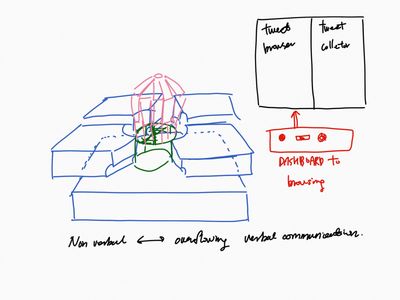 tweet tweet
browser collator
DASHBOARD to
browsing
Non verbal ⟷ overflowing verbal communication.